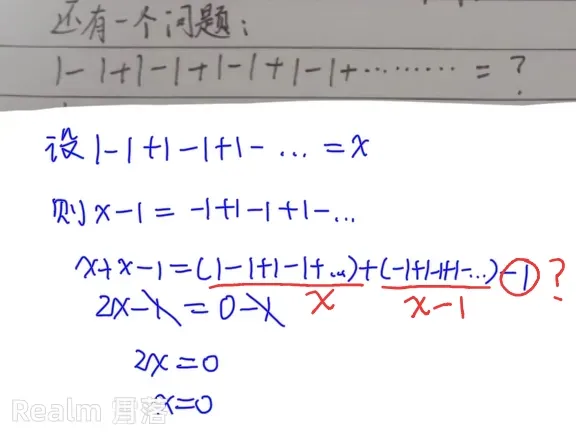 还有一个问题:
1-1+1-1+1-1+1-1+……… = ?
设 1-1+1-1+1-… = x
则 x-1 = -1+1-1+1-…
x+x-1=(1-1+1-1+…)+(-1+1-1+1-…)-1?
x x-1
2x-1=0-1
2x=0
x=0
Realm 雪落